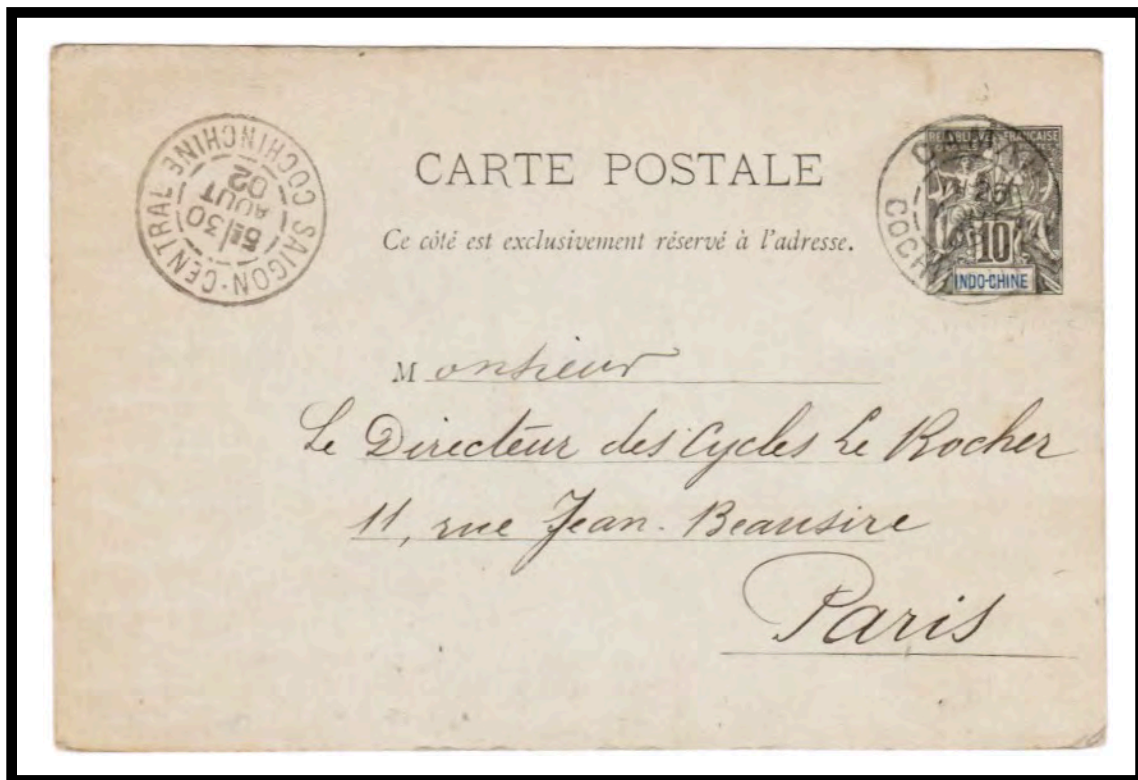 SAIGON-CENTRAL COCHINCHINE
5E/30
AOUT
02
CARTE POSTALE
Ce côté est exclusivement réservé à l'adresse.
REPUBLIQUE FRANCAISE
26
COCH
10
INDO-CHINE
Monsieur
Le Directeur des Cycles Le Rocher
11, rue Jean-Beausire
Paris